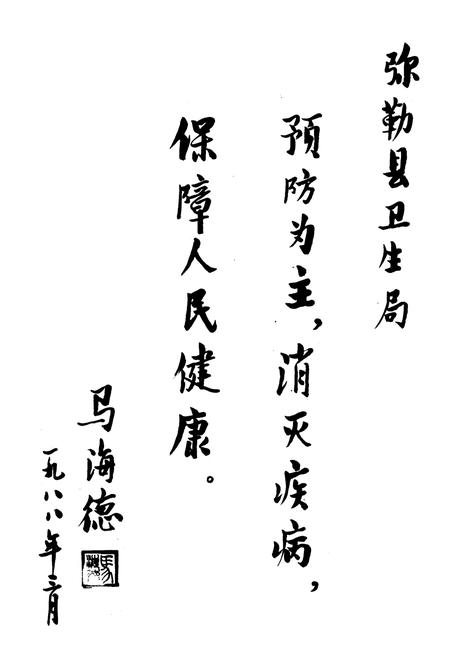 弥勒县卫生局
预防为主，消灭疾病，
保障人民健康。
马海德
一九八八年三月